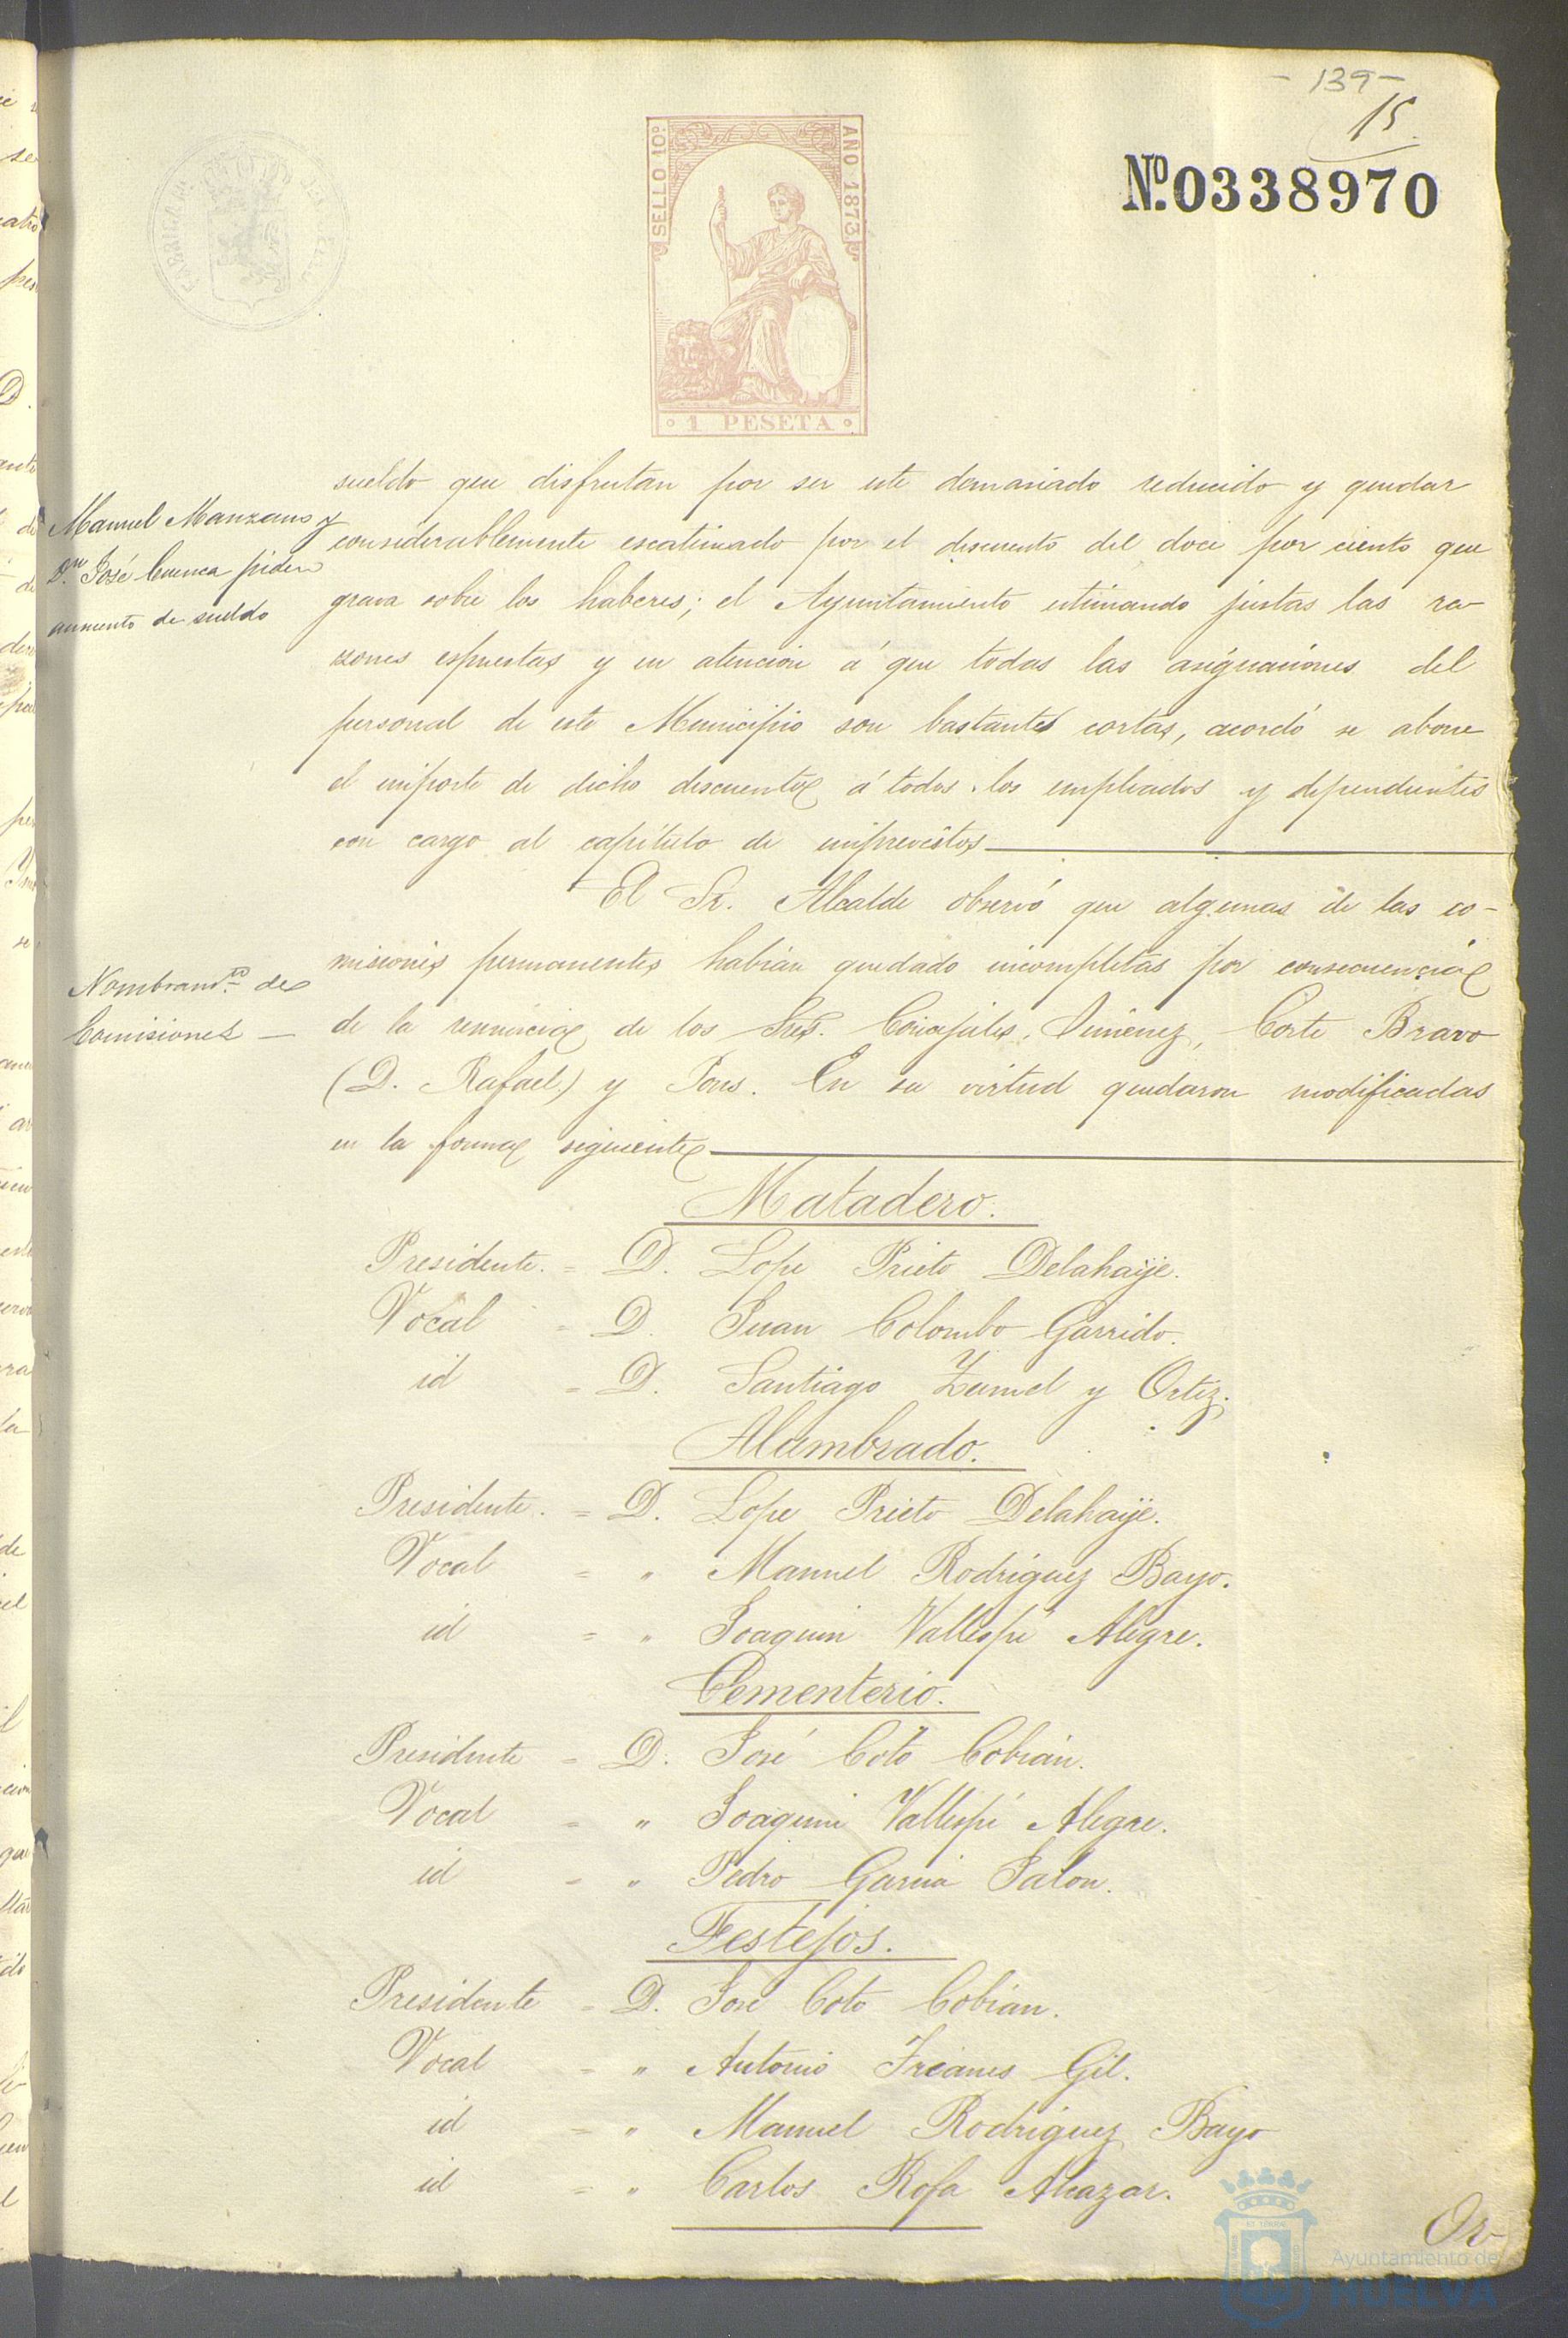 - 139 -
15
Nº. 0338970
SELLO 10º
AÑO 1873
1 PESETA
sueldo que disfrutan por ser este demasiado reducido y quedar
Manuel Manzano y
Dn. José Cuenca piden
aumento de sueldo
considerablemente escatimado por el descuento del doce por ciento que
grava sobre los haberes; el Ayuntamiento estimando justas las ra-
zones espuestas y en atencion á que todas las asignaciones del
personal de este Municipio son bastantes cortas, acordó se abone
el importe de dicho descuento á todos los empleados y dependientes
con cargo al capítulo de imprevistos
El Sr. Alcalde observó que algunas de las co-
Nombramto. de
Comisiones
misiones permanentes habian quedado incompletas por consecuencia
de la renuncia de los Sres. Concejales, Jimenez, Corte Bravo
(D. Rafael) y Pons. En su virtud quedaron modificadas
en la forma siguiente
Matadero.
Presidente. = D. Lope Prieto Delahaÿe.
Vocal = D. Juan Colombo Garrido.
id = D. Santiago Zumel y Ortiz.
Alumbrado.
Presidente. = D. Lope Prieto Delahaÿe.
Vocal = " Manuel Rodriguez Bayo.
id = " Joaquin Vallespí Alegre.
Cementerio.
Presidente = D. José Coto Cobián.
Vocal = " Joaquin Vallespí Alegre.
id = " Pedro Garcia Jalon.
Festejos.
Presidente = D. José Coto Cobián.
Vocal = " Antonio Gil.
id = " Manuel Rodriguez Bayo
id = " Carlos Rofa Alcazar.
Or-
Ayuntamiento de
HUELVA